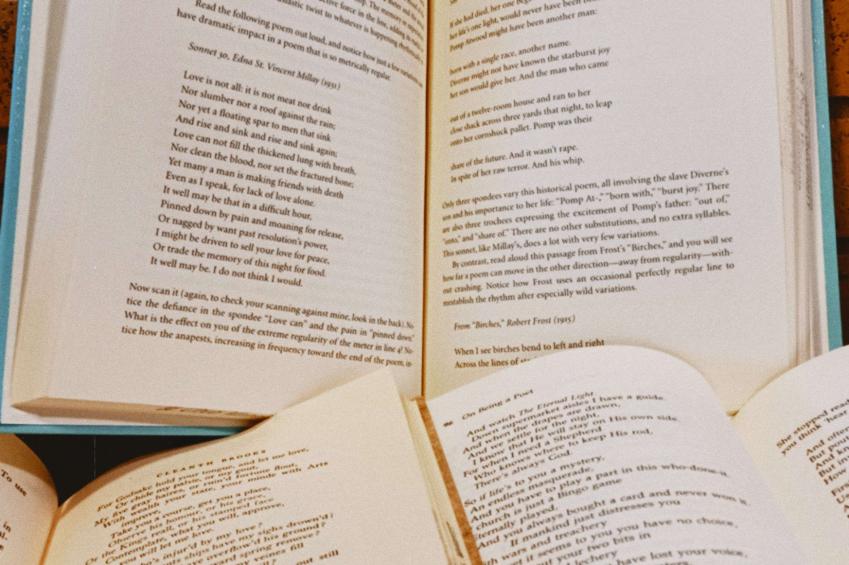 active force in the line, adding its
twist to whatever is happening rhythmically
Read the following poem out loud, and notice how just a few variations
have dramatic impact in a poem that is so metrically regular.
Sonnet 30, Edna St. Vincent Millay (1931)
Love is not all: it is not meat nor drink
Nor slumber nor a roof against the rain;
Nor yet a floating spar to men that sink
And rise and sink and rise and sink again;
Love can not fill the thickened lung with breath,
Nor clean the blood, nor set the fractured bone;
Yet many a man is making friends with death
Even as I speak, for lack of love alone.
It well may be that in a difficult hour,
Pinned down by pain and moaning for release,
Or nagged by want past resolution's power,
I might be driven to sell your love for peace,
Or trade the memory of this night for food.
It well may be. I do not think I would.
Now scan it (again, to check your scanning against mine, look in the back). No-
tice the defiance in the spondee "Love can" and the pain in "pinned down."
What is the effect on you of the extreme regularity of the meter in line 4? No-
tice how the anapests, increasing in frequency toward the end of the poem, in-
If she had died, her one
her life's one light, would never have been
Pomp Atwood might have been another man:
born with a single race, another name.
Diverne might not have known the starburst joy
her son would give her. And the man who came
out of a twelve-room house and ran to her
close shack across three yards that night, to leap
onto her cornshuck pallet. Pomp was their
share of the future. And it wasn't rape.
In spite of her raw terror. And his whip.
Only three spondees vary this historical poem, all involving the slave Diverne's
son and his importance to her life: "Pomp At-," "born with," "burst joy." There
are also three trochees expressing the excitement of Pomp's father: "out of,"
"onto," and "share of." There are no other substitutions, and no extra syllables.
This sonnet, like Millay's, does a lot with very few variations.
By contrast, read aloud this passage from Frost's "Birches," and you will see
how far a poem can move in the other direction—away from regularity—with-
out crashing. Notice how Frost uses an occasional perfectly regular line to
reestablish the rhythm after especially wild variations.
From "Birches," Robert Frost (1915)
When I see birches bend to left and right
Across the lines of
CLEANTH BROOKS
For Godsake hold your tongue, and let me love,
Or chide my palsie, or my gout,
My five gray haires, or ruin'd fortune flout,
With wealth your state, your minde with Arts
improve,
Take you a course, get you a place,
Observe his honour, or his grace,
Or the Kings reall, or his stamped face
Contemplate, what you will, approve,
So you will let me love.
who's injur'd by my love?
ships have my sighs drown'd?
overflow'd his ground?
spring remove?
veines fill
On Being a Poet
And watch The Eternal Light.
Down supermarket aisles I have a guide.
And when the drapes are drawn,
And we settle for the night,
I know that He will stay on His own side.
For when I need a Shepherd
Who knows where to keep His rod,
There's always God.
So if life's to you a mystery,
An endless masquerade,
And you have to play a part in this who-done-it,
church is just a Bingo game
ternally played,
And you always bought a card and never won it
If mankind just distresses you
th wars and treachery
it seems to you you have no choice,
your two bits in
lechery
have lost your voice,
She stopped
you think
And
To use
in